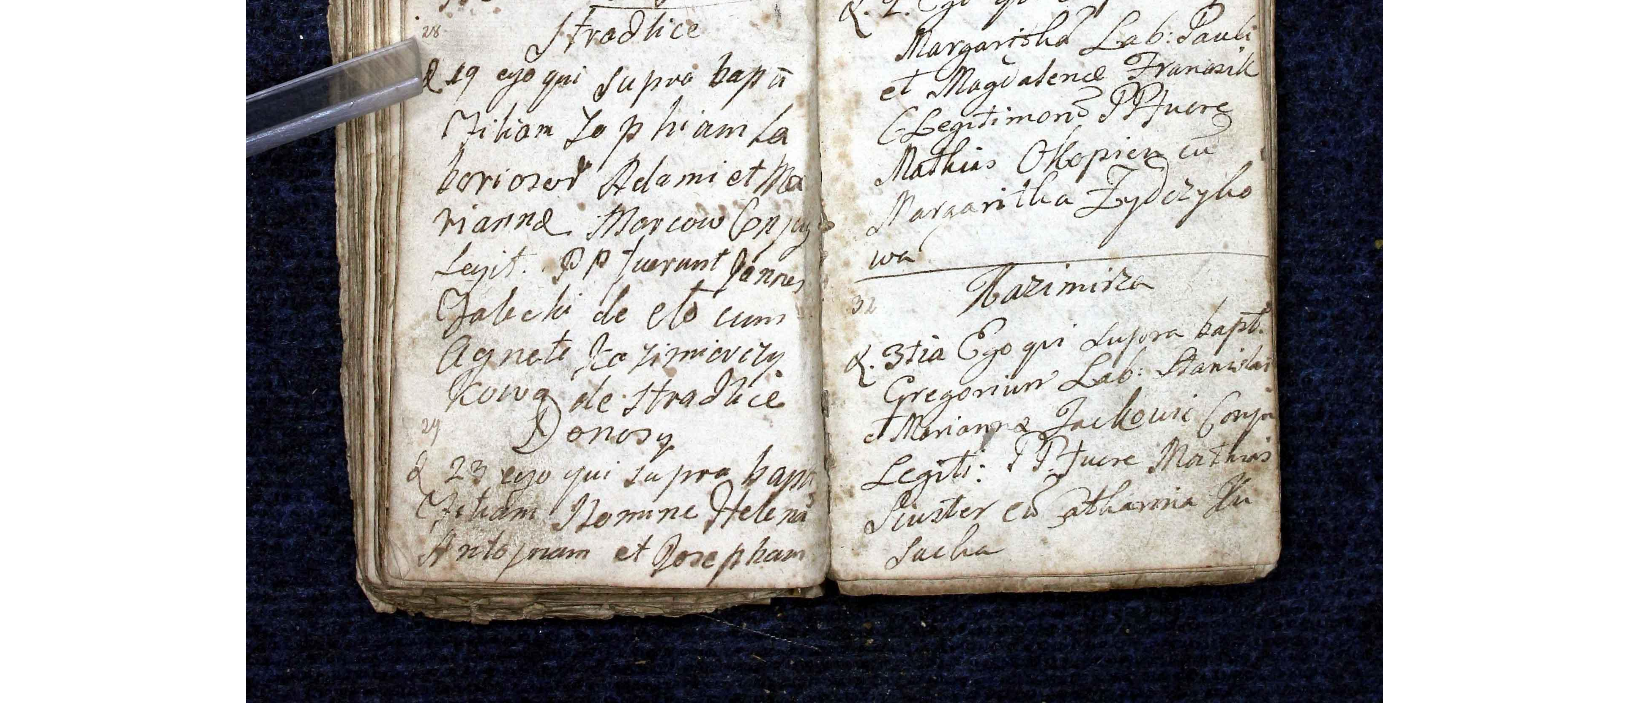 28
Stradlice
D. 19 ego qui supra bapti
Filiam Zophiam La
boriosor Adami et Ma
riannæ Marcow Conjug
Legit. PP fuerunt Joannes
de cum
Agneti Kazimierczy
kowa de Stradlice
29
Donosy
D 23 ego qui supra bapt
Filiam Nomine Helenā
Antonam et Josepham
D. 2. Ego qui
Margarithā Lab: Pauli
et Magdalenæ Franczik
CLegitimorū PPfuere
Mathias Okopien cū
Margaritha Zydczyko
wa
Kazimirza
32
D. 3tia Ego qui supra bapt.
Gregorium Lab: Stanislai
et Mariannæ Jackowic Conju
Legiti: PPfuere Mathias
Siuster cū Catharina Ku
sacka